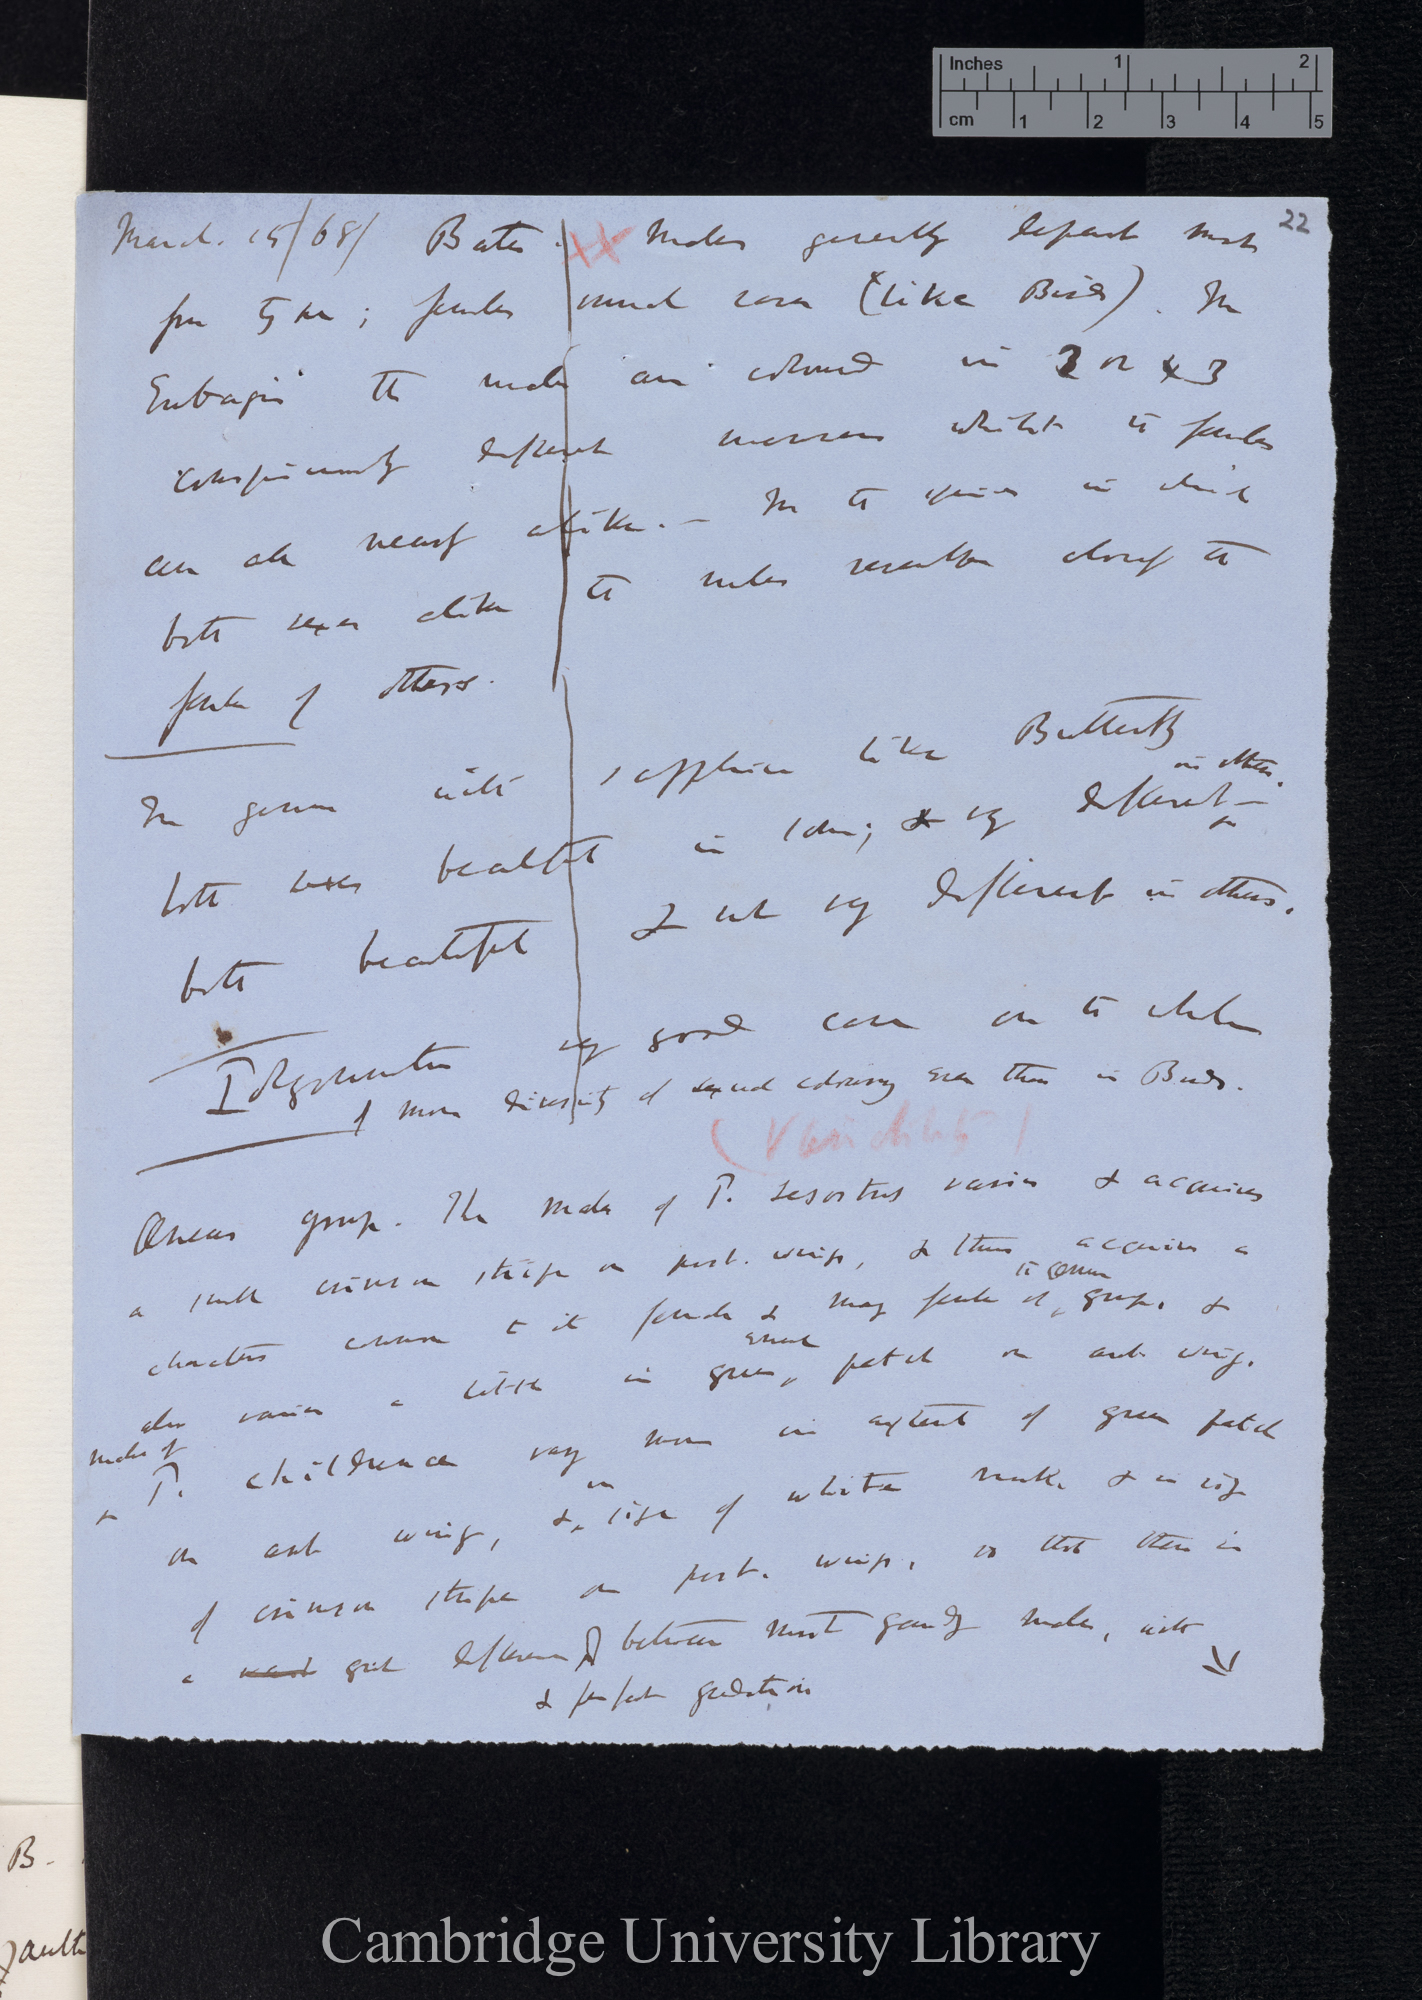 Inches 1 2
cm 1 2 3 4 5
22
March. 15/68/ Bates. Males generally depart most
from type; females much rarer (like Birds). In
Eubagis the males are coloured in 2 or 4 3
conspicuously different manners whilst the females
are all nearly alike. — In the species in which
both sexes alike the males resemble closely the
female of others.
In genus with sapphire like Butterfly
both sexes beautiful in some; & very different in others.
both beautiful & not very different in others.
very good case on the whole
of more diversity of sexual colouring even than in Birds.
(Variability)
Æneas group. The male of P. sesostris varies & acquires
a small crimson stripe on post. wings, & thus acquires a
character common to its female & many female of the Æneas group. &
also varies a little in green patch on ant wing.
males of
P. childrenae vary more in extent of green patch
on ant wing, & in size of white mark & in size
of crimson stripe on post. wings. so that there is
a great difference between most gaudy males, with
& perfect gradation
B.
Cambridge University Library